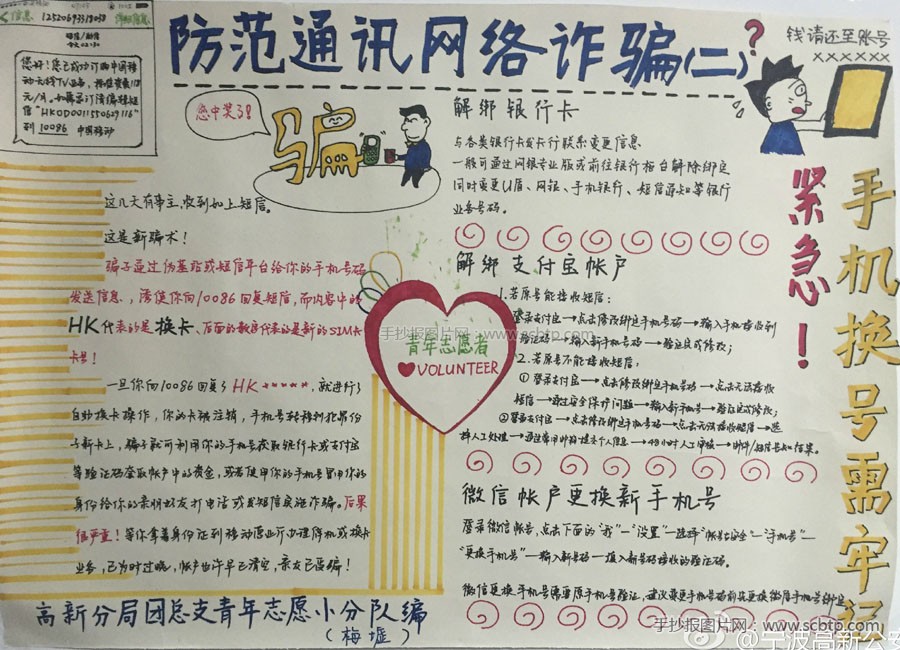 防范通讯网络诈骗(二)
?
钱请还至账号
XXXXXX
紧急!
手机换号需牢记
信息 1252069331903
您好!您已成功订购中国移
动无线TV业务,
元/月。
信"HK0D0011550629116"
到 10086 中国移动
您中奖了!
骗
这几天有事主,收到如上短信。
这是新骗术!
骗子通过伪基站或短信平台给你的手机号码
发送信息,请使你向10086回复短信,而内容中的
HK代表的是换卡、后面的数字代表的是新的SIM卡
卡号!
一旦你向10086回复了 HK*****,就进行了
自助换卡操作,你的卡被注销,手机号转移到犯罪份
子新卡上,骗子就可利用你的手机号获取银行卡或支付宝
等验证码盗取帐户中的资金,或再使用你的手机号冒用你的
身份给你的亲朋好友打电话或发短信实施诈骗。后果
很严重!等你拿着身份证到移动营业厅办理停机或换卡
业务,已为时过晚,帐户也许早已清空,亲友已受骗!
高新分局团总支青年志愿小分队编
(梅墟)
青年志愿者
VOLUNTEER
手抄报图片网:www.scbtp.com
解绑银行卡
与各类银行卡发卡行联系变更信息
一般可通过网银专业版或前往银行柜台解除绑定
同时变更U盾、网银、手机银行、短信通知等银行
业务号码。
解绑支付宝帐户
1.若原号能接收短信:
登录支付宝→点击修改绑定手机号码→输入手机接收到
验证码→输入新手机号码→验证完成修改;
2.若原号不能接收短信:
①登录支付宝→点击修改绑定手机号码→点击无法接收
短信→通过安全保护问题→输入新手机号→验证完成修改;
②登录支付宝→点击修改绑定手机号码→点击无法接收短信→选
择人工处理→通过常用邮箱提交个人信息→48小时人工审核→邮件/短信告知结果。
微信帐户更换新手机号
登录微信帐号,点击下面的"我"—"设置"—选择"帐号与安全"—"手机号"—
"更换手机号"—输入新号码—填入新号码接收的验证码。
微信更换手机号需要原手机号验证,建议变更手机号码前先更换微信手机号绑定
手抄报图片网:www.scbtp.com
@宁波高新公安